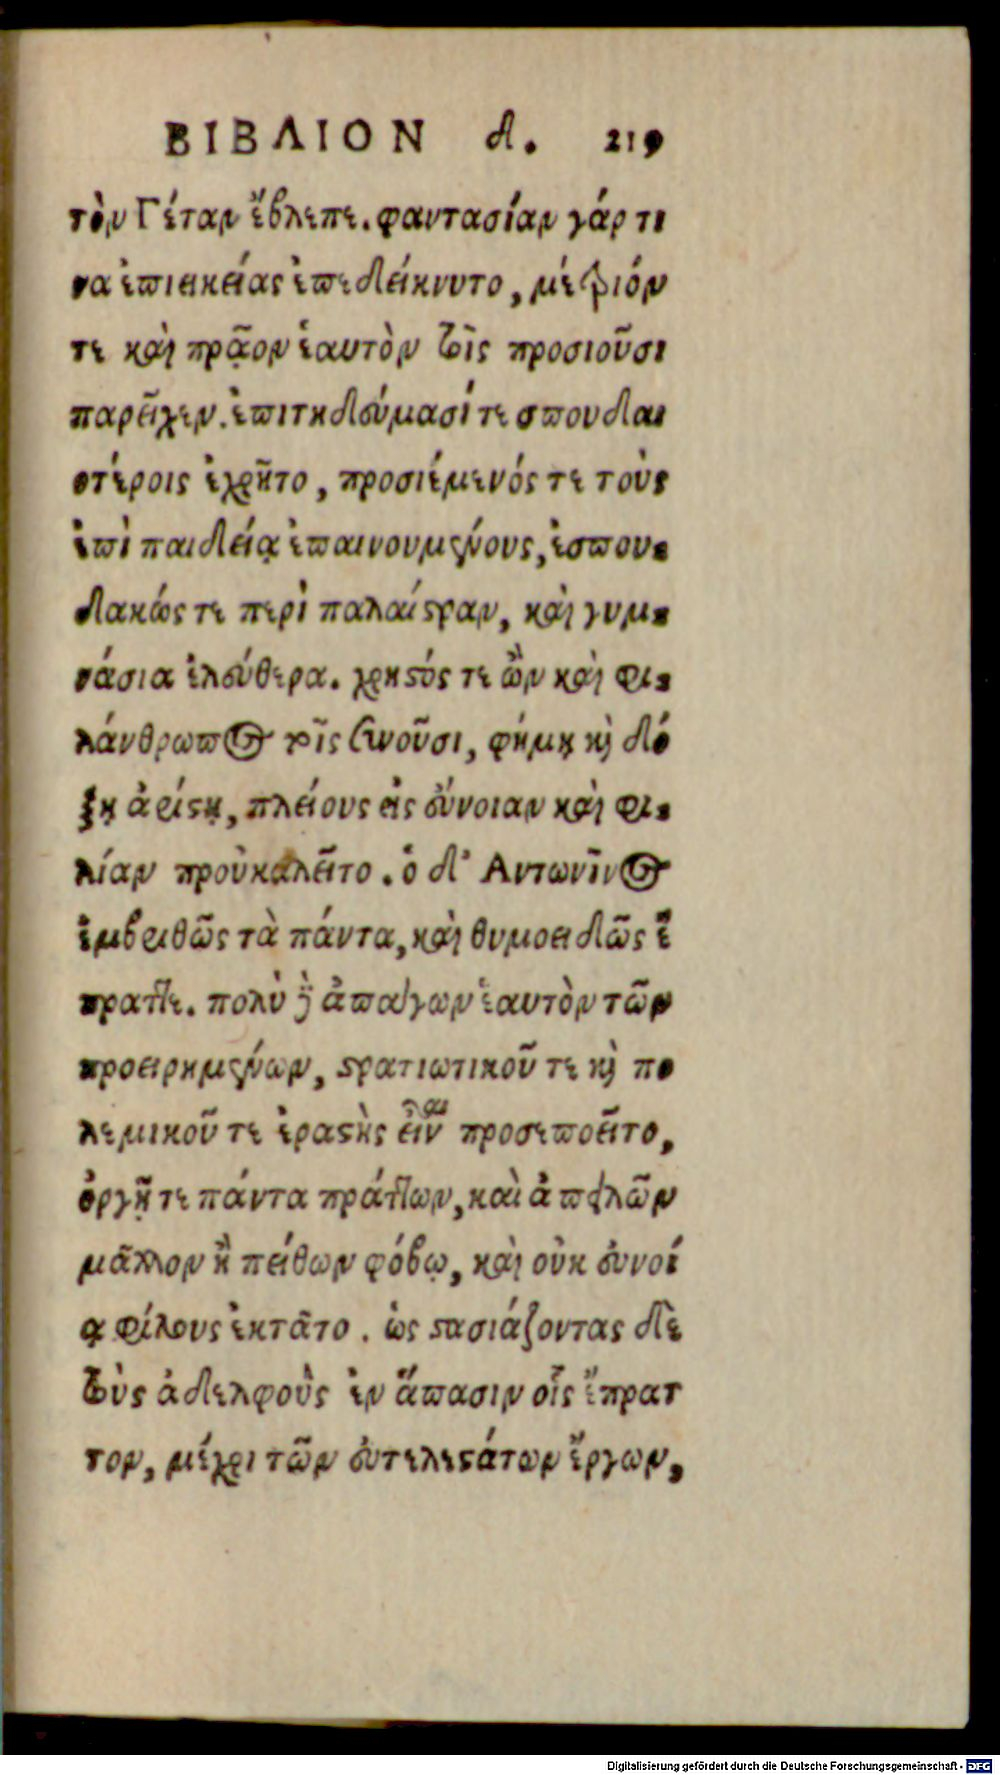 ΒΙΒΛΙΟΝ δ. 219
τὸν Γέταν ἔβλεπε. φαντασίαν γάρ τι
να ἐπιεικείας ἐπεδείκνυτο, μέτριόν
τε καὶ πρᾷον ἑαυτὸν τοῖς προσιοῦσι
παρεῖχεν. ἐπιτηδεύμασί τε σπουδαι
οτέροις ἐχρῆτο, προσιέμενός τε τοὺς
ἐπὶ παιδείᾳ ἐπαινουμένους, ἐσπου-
δακώς τε περὶ παλαίστραν, καὶ γυμ-
νάσια ἐλεύθερα. χρηστός τε ὢν καὶ φι-
λάνθρωπος τοῖς συνοῦσι, φήμῃ καὶ δό
ξῃ ἀρίστῃ, πλείους εἰς εὔνοιαν καὶ φι-
λίαν προὐκαλεῖτο. ὁ δ' Αντωνῖνος
ἐμβριθῶς τὰ πάντα, καὶ θυμοειδῶς ἔ
πραττε. πολὺ δὲ ἀπαγαγὼν ἑαυτὸν τῶν
προειρημένων, στρατιωτικοῦ τε καὶ πο
λεμικοῦ τε ἐραστὴς εἶναι προσεποεῖτο,
ὀργῇ τε πάντα πράττων, καὶ ἀπειλῶν
μᾶλλον ἢ πείθων φόβῳ, καὶ οὐκ εὐνοί
ᾳ φίλους ἐκτᾶτο. ὡς στασιάζοντας δὲ
τοὺς ἀδελφοὺς ἐν ἅπασιν οἷς ἔπρατ
τον, μέχρι τῶν εὐτελεστάτων ἔργων,
Digitalisierung gefördert durch die Deutsche Forschungsgemeinschaft - DFG